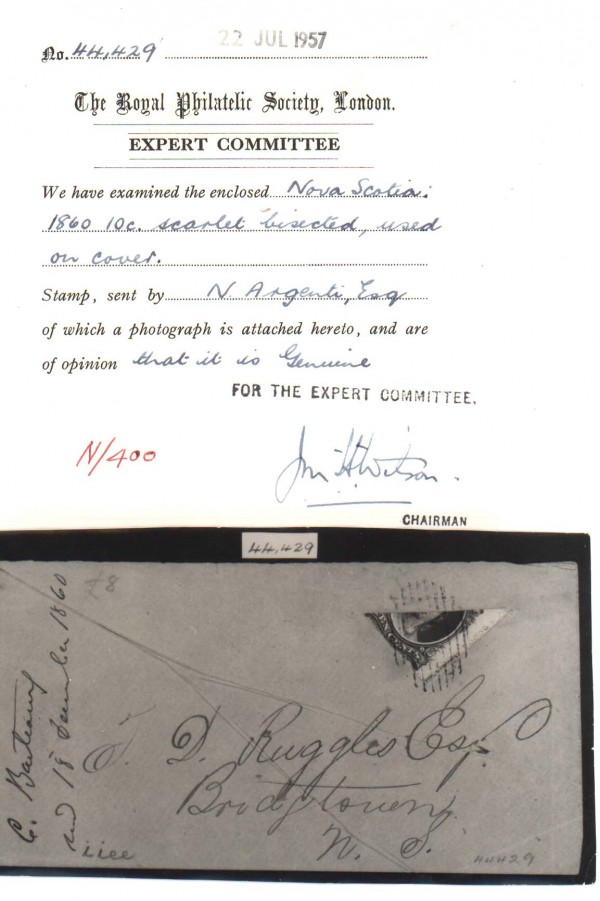 22 JUL 1957
No. 44,429
The Royal Philatelic Society, London.
EXPERT COMMITTEE
We have examined the enclosed Nova Scotia:
1860 10c. scarlet bisected, used
on cover.
Stamp, sent by N. Argenti, Esq
of which a photograph is attached hereto, and are
of opinion that it is Genuine
FOR THE EXPERT COMMITTEE.
N/400
CHAIRMAN
44,429
£8
C.
18 December 1860
T. D. Ruggles Esq.
Bridgetown
N. S.
44429